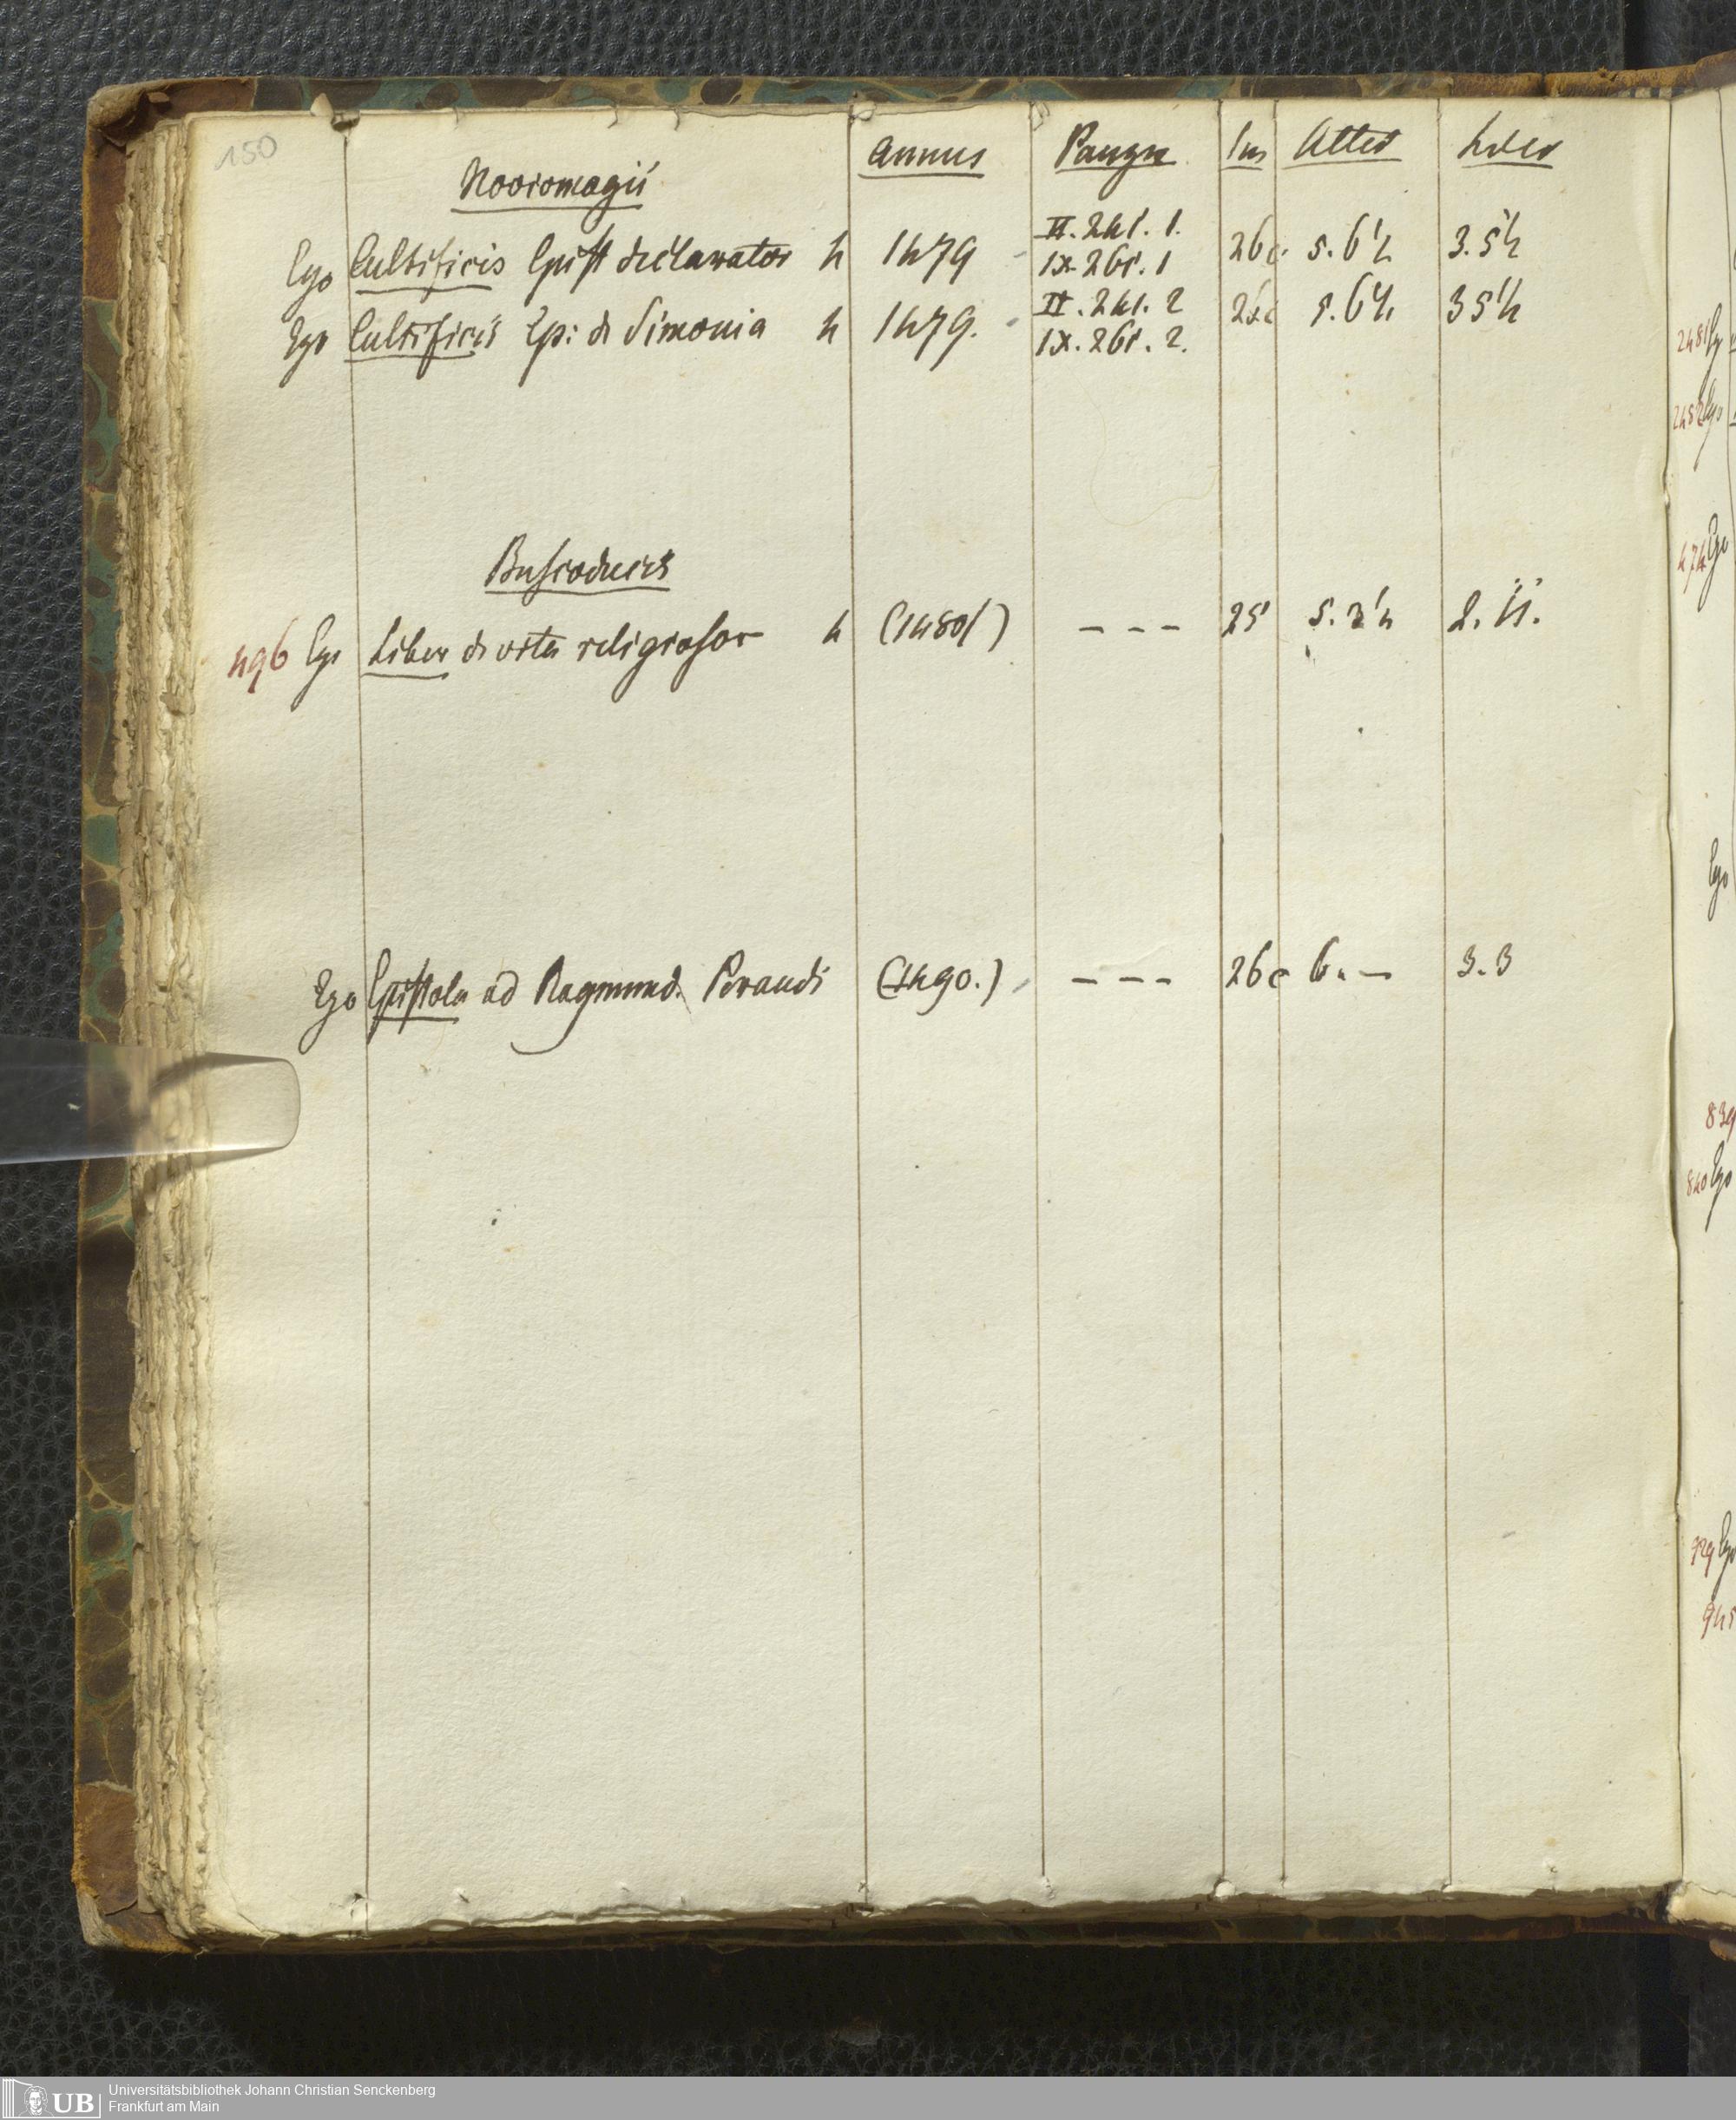 150
Annus Panzer Lin Altid Lder
Noviomagii
Ego Cultificis Epist declarator 4 1479 II. 241. 1. 26c 5. 6½ 3. 5½
IX. 261. 1
Ego Cultificis Ep: de Simonia 4 1479. II. 241. 2 5. 6½ 3 5½
IX. 261. 2.
Buscoducis
496 Ego Liber de vita religiosor 4 - - - 25 2. 11.
Ego Epistola ad Raymund. Peraudi (1490.) - - - 26c 6. - 3. 3
2481 Ego
2482 Ego
474 Ego
Ego
839
840 Ego
929 Ego
945
UB
Universitätsbibliothek Johann Christian Senckenberg
Frankfurt am Main